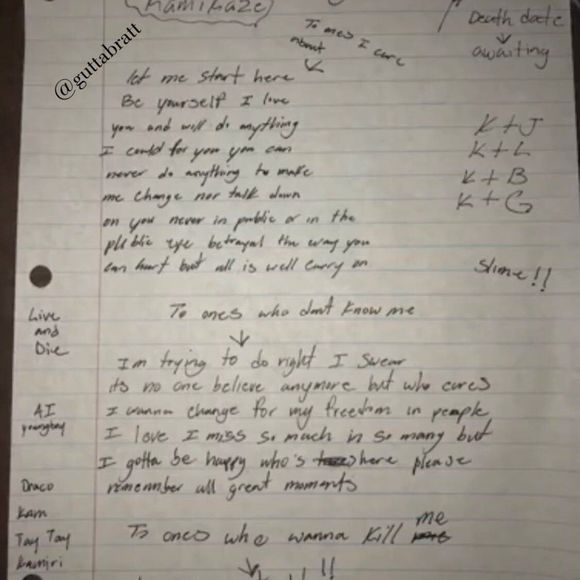 Kamikaze
@guttabratt
Death date
awaiting
To ones I care
about
let me start here
Be yourself I love
you and will do anything
I could for you you can
never do anything to make
me change nor talk down
on you never in public or in the
public eye betrayal the way you
can hurt but all is well carry on
K + J
K + L
K + B
K + G
Slime!!
To ones who dont know me
Live
and
Die
Im trying to do right I swear
its no one believe anymore but who cares
I wanna change for my freedom in people
I love I miss so much in so many but
I gotta be happy who's here please
remember all great moments
AI
youngboy
Draco
Kam
Tay Tay
Kamiri
To ones who wanna kill me
!!